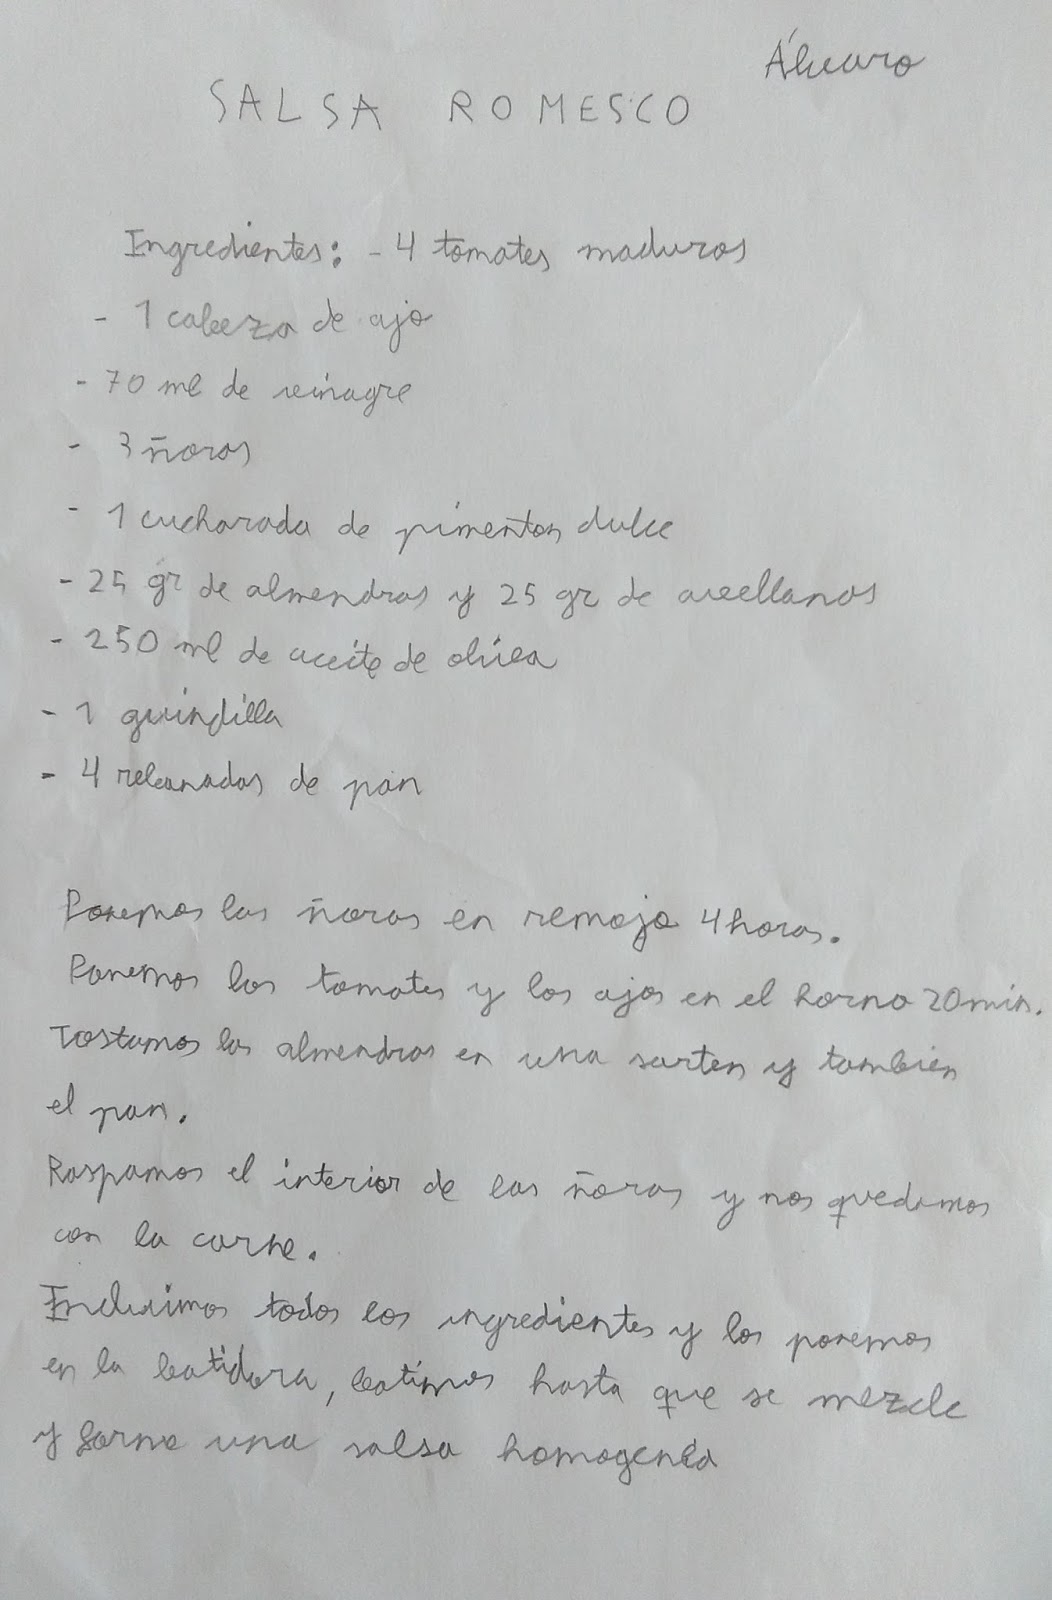 Álvaro
SALSA ROMESCO
Ingredientes: - 4 tomates maduros
- 1 cabeza de ajo
- 70 ml de vinagre
- 3 ñoras
- 1 cucharada de pimenton dulce
- 25 gr de almendras y 25 gr de avellanas
- 250 ml de aceite de oliva
- 1 guindilla
- 4 rebanadas de pan
Ponemos las ñoras en remojo 4 horas.
Ponemos los tomates y los ajos en el horno 20 min.
Tostamos las almendras en una sarten y tambien
el pan.
Raspamos el interior de las ñoras y nos quedamos
con la carne.
Incluimos todos los ingredientes y los ponemos
en la batidora, batimos hasta que se mezcle
y forme una salsa homogenea